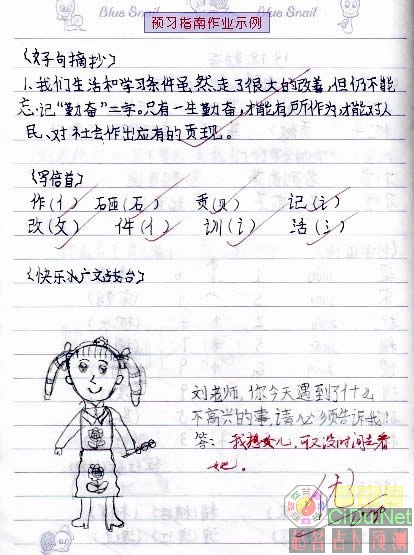 Blue Snail
Blue Snail
预习指南作业示例
《好句摘抄》
1.我们生活和学习条件虽然走了很大的改善,但仍不能
忘记“勤奋”二字。只有一生勤奋,才能有所作为才能对人
民、对社会作出应有的贡现。
《写偏首》
作(亻) 砸(石) 贡(贝) 记(讠)
改(攵) 件(亻) 训(讠) 活(氵)
《快乐 广 台》
刘老师,你今天遇到了什么
不高兴的事,请必须告诉我!
答:我想女儿,可又没时间去看
她。
CiDuNet
起名占卜预测